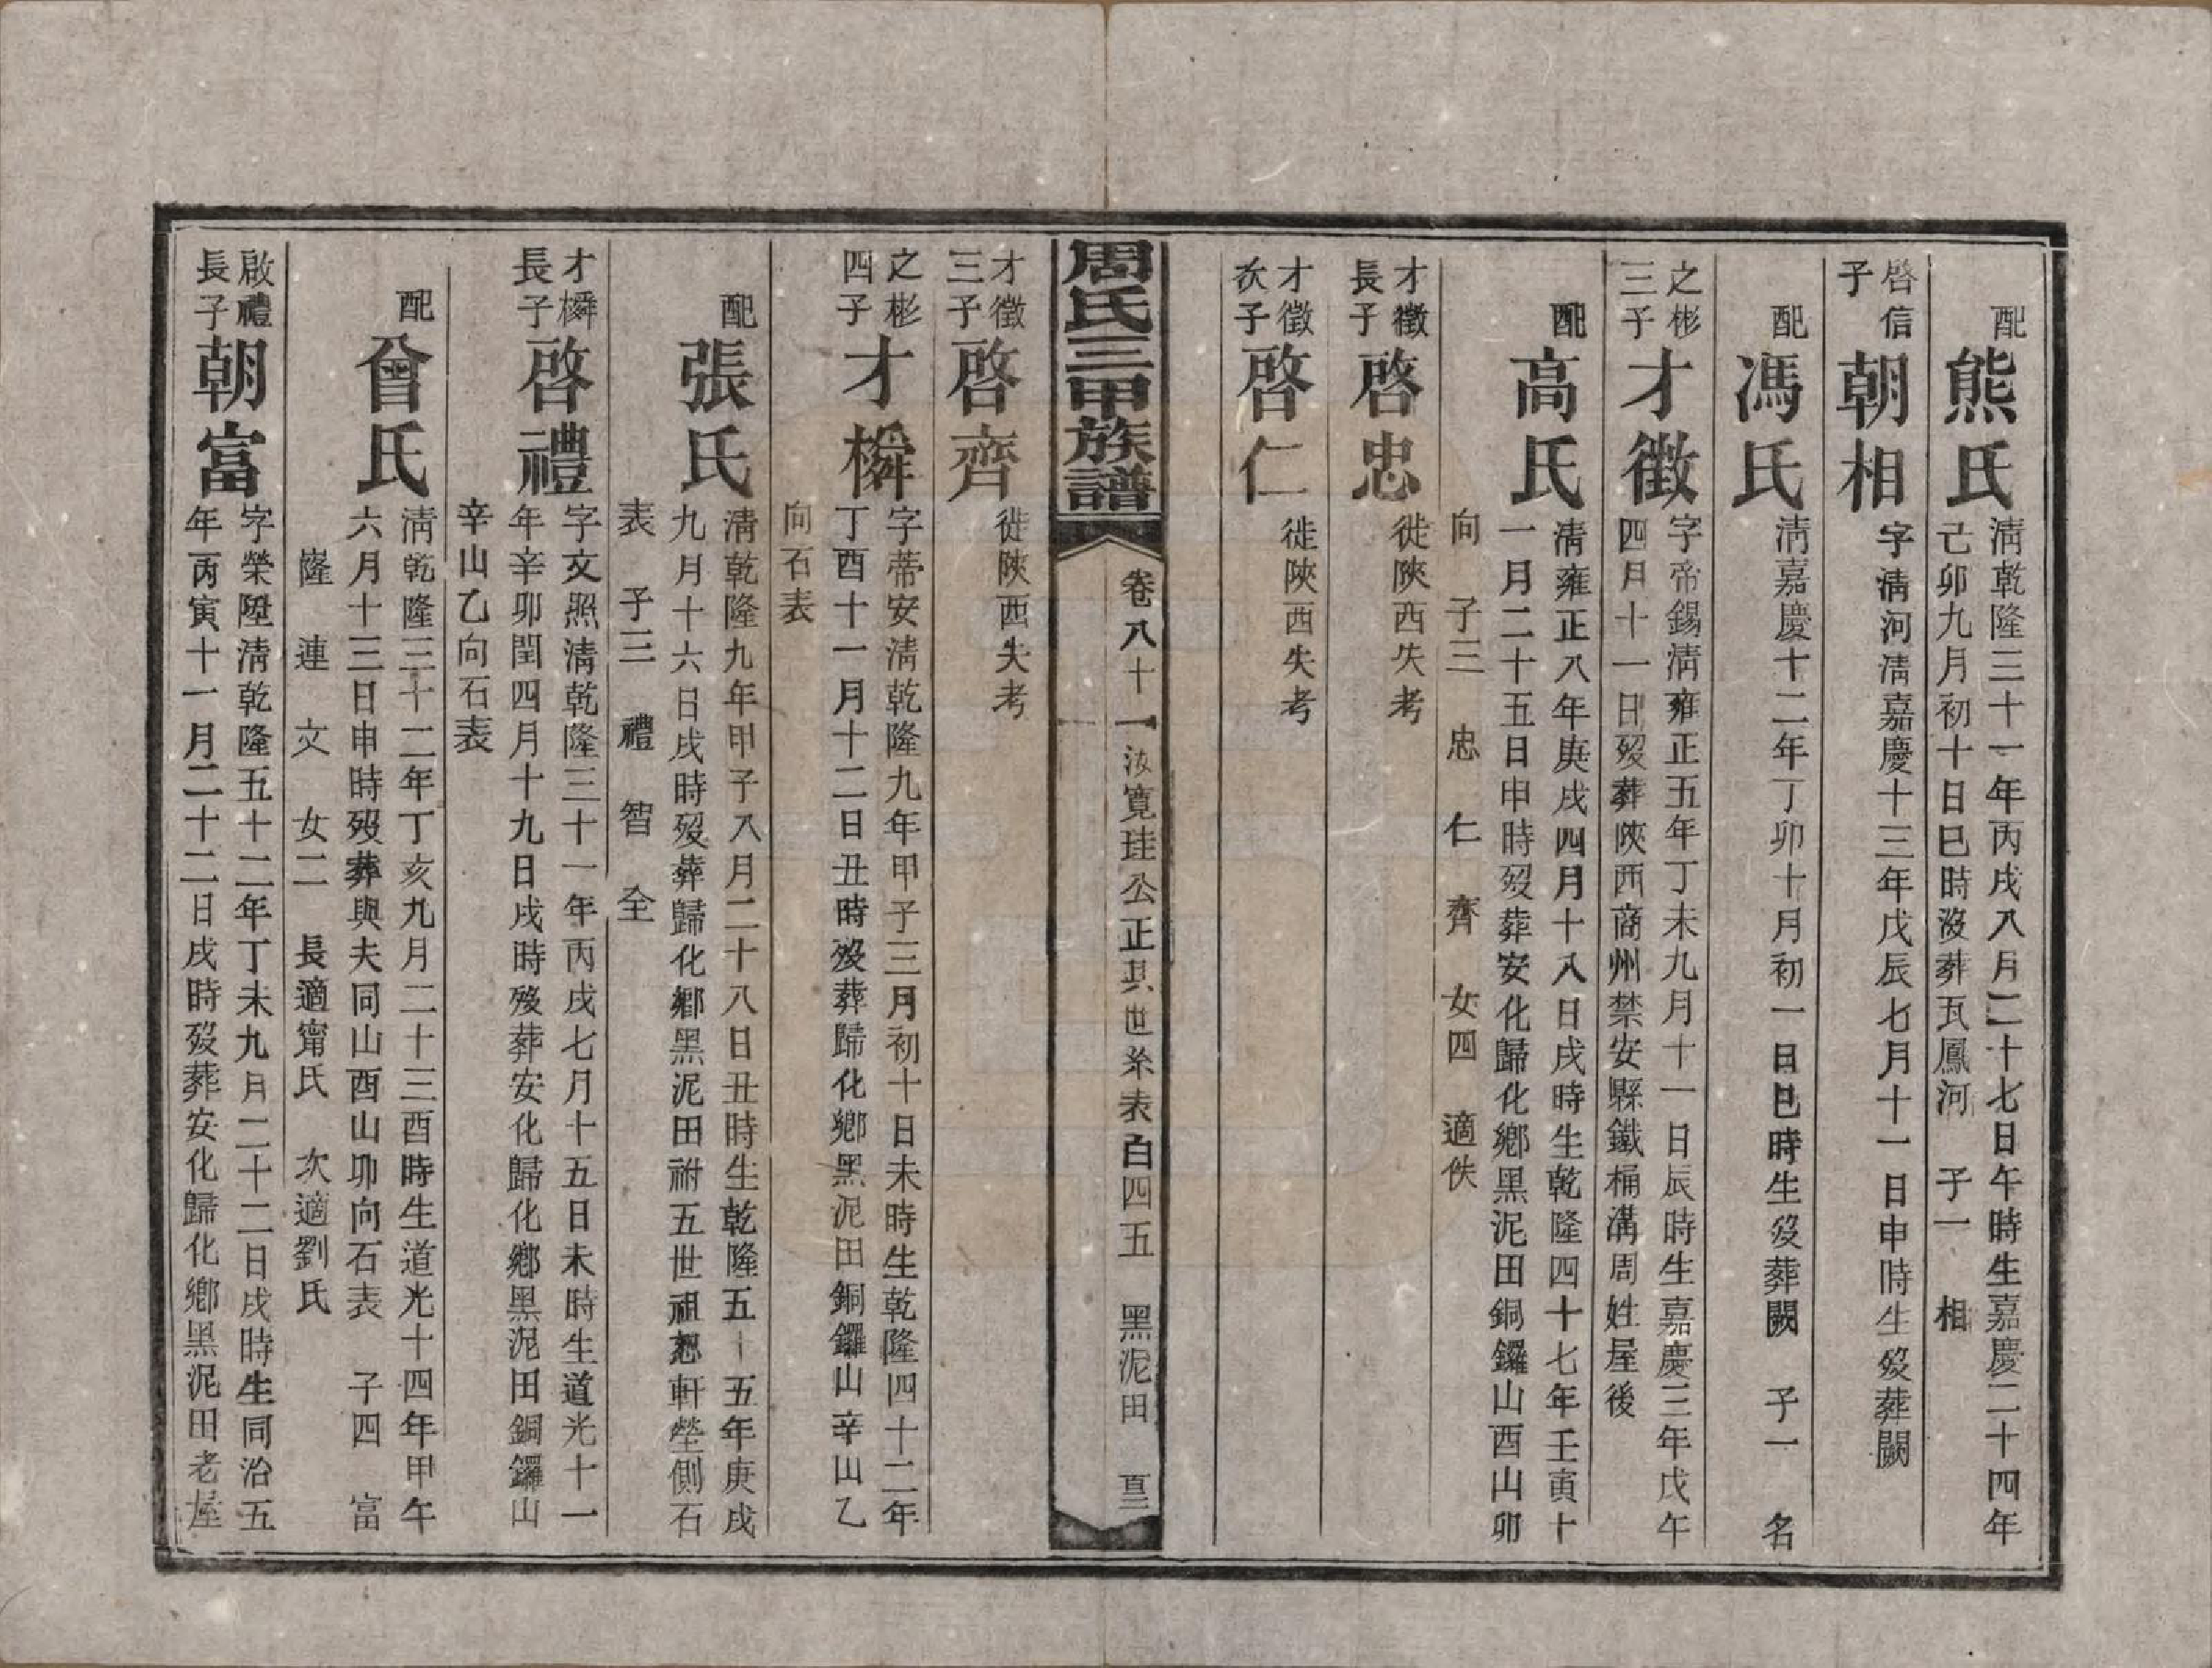 配
熊氏
淸乾隆三十一年丙戌八月二十七日午時生嘉慶二十四年
己卯九月初十日巳時歿葬瓦鳳河 子一 相
啓信
子
朝相
字淸河淸嘉慶十三年戊辰七月十一日申時生歿葬闕
配
馮氏
淸嘉慶十二年丁卯十月初一日巳時生歿葬闕 子一 名
之彬
三子
才徵
字帝錫淸雍正五年丁未九月十一日辰時生嘉慶三年戊午
四月十一日歿葬陜西商州禁安縣鐵桶溝周姓屋後
配
高氏
淸雍正八年庚戌四月十八日戌時生乾隆四十七年壬寅十
一月二十五日申時歿葬安化歸化鄉黑泥田銅鑼山酉山卯
向 子三 忠 仁 齊 女四 適佚
才徵
長子
啓忠
徙陜西失考
才徵
次子
啓仁
徙陜西失考
周氏三甲族譜
卷八十一 汝寬珪公正其世系表百四五 黑泥田
才徵
三子
啓齊
徙陜西失考
之彬
四子
才橓
字蒂安淸乾隆九年甲子三月初十日未時生乾隆四十二年
丁酉十一月十二日丑時歿葬歸化鄉黑泥田銅鑼山辛山乙
向石表
配
張氏
淸乾隆九年甲子八月二十八日丑時生乾隆五十五年庚戌
九月十六日戌時歿葬歸化鄉黑泥田祔五世祖愬軒塋側石
表 子三 禮 智 全
才橓
長子
啓禮
字文照淸乾隆三十一年丙戌七月十五日未時生道光十一
年辛卯閏四月十九日戌時歿葬安化歸化鄉黑泥田銅鑼山
辛山乙向石表
配
曾氏
淸乾隆三十二年丁亥九月二十三酉時生道光十四年甲午
六月十三日申時歿葬與夫同山酉山卯向石表 子四 富
隆 連 文 女二 長適甯氏 次適劉氏
啟禮
長子
朝富
字榮陞淸乾隆五十二年丁未九月二十二日戌時生同治五
年丙寅十一月二十二日戌時歿葬安化歸化鄉黑泥田老屋